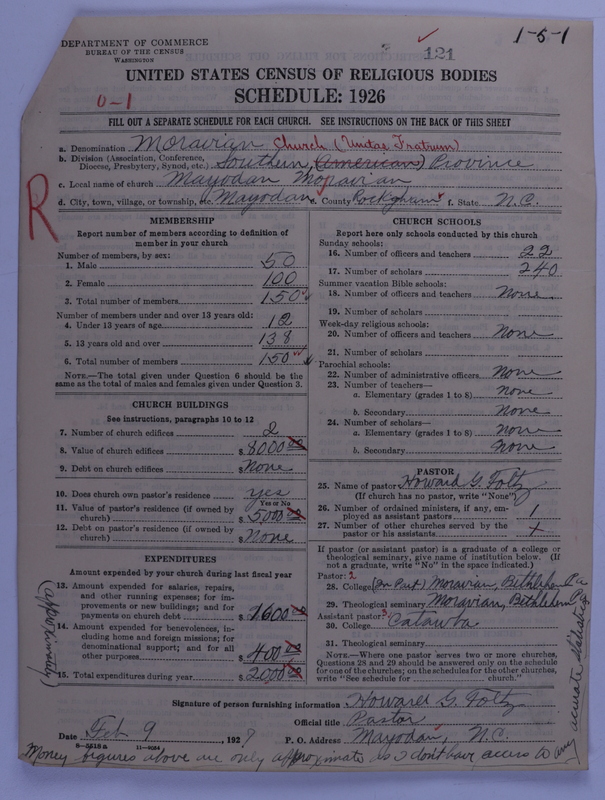 1-5-1
121
DEPARTMENT OF COMMERCE
BUREAU OF THE CENSUS
WASHINGTON
UNITED STATES CENSUS OF RELIGIOUS BODIES
SCHEDULE: 1926
0-1
FILL OUT A SEPARATE SCHEDULE FOR EACH CHURCH. SEE INSTRUCTIONS ON THE BACK OF THIS SHEET
a. Denomination Moravian Church (Unitas Fratrum)
b. Division (Association, Conference, Diocese, Presbytery, Synod, etc.) Southern (American) Province
c. Local name of church Mayodan Moravian
d. City, town, village, or township, etc. Mayodan e. County Rockgham f. State N.C.
R
MEMBERSHIP
Report number of members according to definition of
member in your church
Number of members, by sex:
1. Male 50
2. Female 100
3. Total number of members 150
Number of members under and over 13 years old:
4. Under 13 years of age 12
5. 13 years old and over 138
6. Total number of members 150
NOTE.—The total given under Question 6 should be
same as the total of males and females given under Question 3.
CHURCH BUILDINGS
See instructions, paragraphs 10 to 12
7. Number of church edifices 2
8. Value of church edifices $ 8000 00
9. Debt on church edifices $ None
10. Does church own pastor's residence yes
Yes or No
11. Value of pastor's residence (if owned by
church) $ 5000 00
12. Debt on pastor's residence (if owned by
church) $ None
EXPENDITURES
Amount expended by your church during last fiscal year
13. Amount expended for salaries, repairs,
and other running expenses; for im-
provements or new buildings; and for
payments on church debt $ 1600 00
14. Amount expended for benevolences, in-
cluding home and foreign missions; for
denominational support; and for all
other purposes $ 400 00
15. Total expenditures during year $ 2000 00
(approximately)
CHURCH SCHOOLS
Report here only schools conducted by this church
Sunday schools:
16. Number of officers and teachers 22
17. Number of scholars 240
Summer vacation Bible schools:
18. Number of officers and teachers None
19. Number of scholars
Week-day religious schools:
20. Number of officers and teachers None
21. Number of scholars
Parochial schools:
22. Number of administrative officers None
23. Number of teachers—
a. Elementary (grades 1 to 8) None
b. Secondary None
24. Number of scholars—
a. Elementary (grades 1 to 8) None
b. Secondary None
PASTOR
25. Name of pastor Howard G. Foltz
(If church has no pastor, write "None")
26. Number of ordained ministers, if any, em-
ployed as assistant pastors 1
27. Number of other churches served by the
pastor or his assistants
If pastor (or assistant pastor) is a graduate of a college or
theological seminary, give name of institution below. (If
not a graduate, write "No" in the space indicated.)
Pastor: 2
28. College (In Part) Moravian, Bethlehem Pa
29. Theological seminary Moravian, Bethlehem Pa
Assistant pastor: 3
30. College Catawba
31. Theological seminary
NOTE.—Where one pastor serves two or more churches,
Questions 28 and 29 should be answered only on the schedule
for one of the churches; on the schedules for the other churches,
write "See schedule for church."
Signature of person furnishing information Howard G. Foltz
Official title Pastor
Date Feb 9, 1927 P. O. Address Mayodan, N.C.
8-5518a 11-9084
Money figures above are only approximate as I don't have access to any acurate statistics